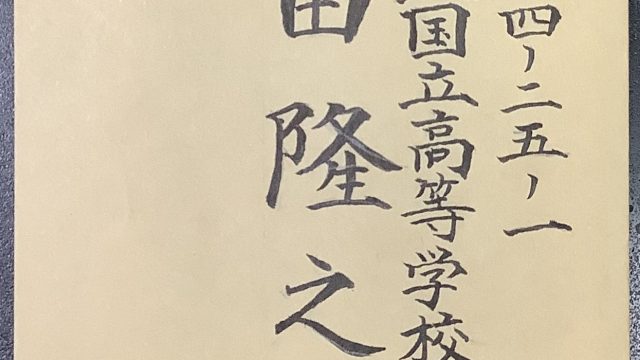 四ー二五ー一
国立高等学校
田隆之